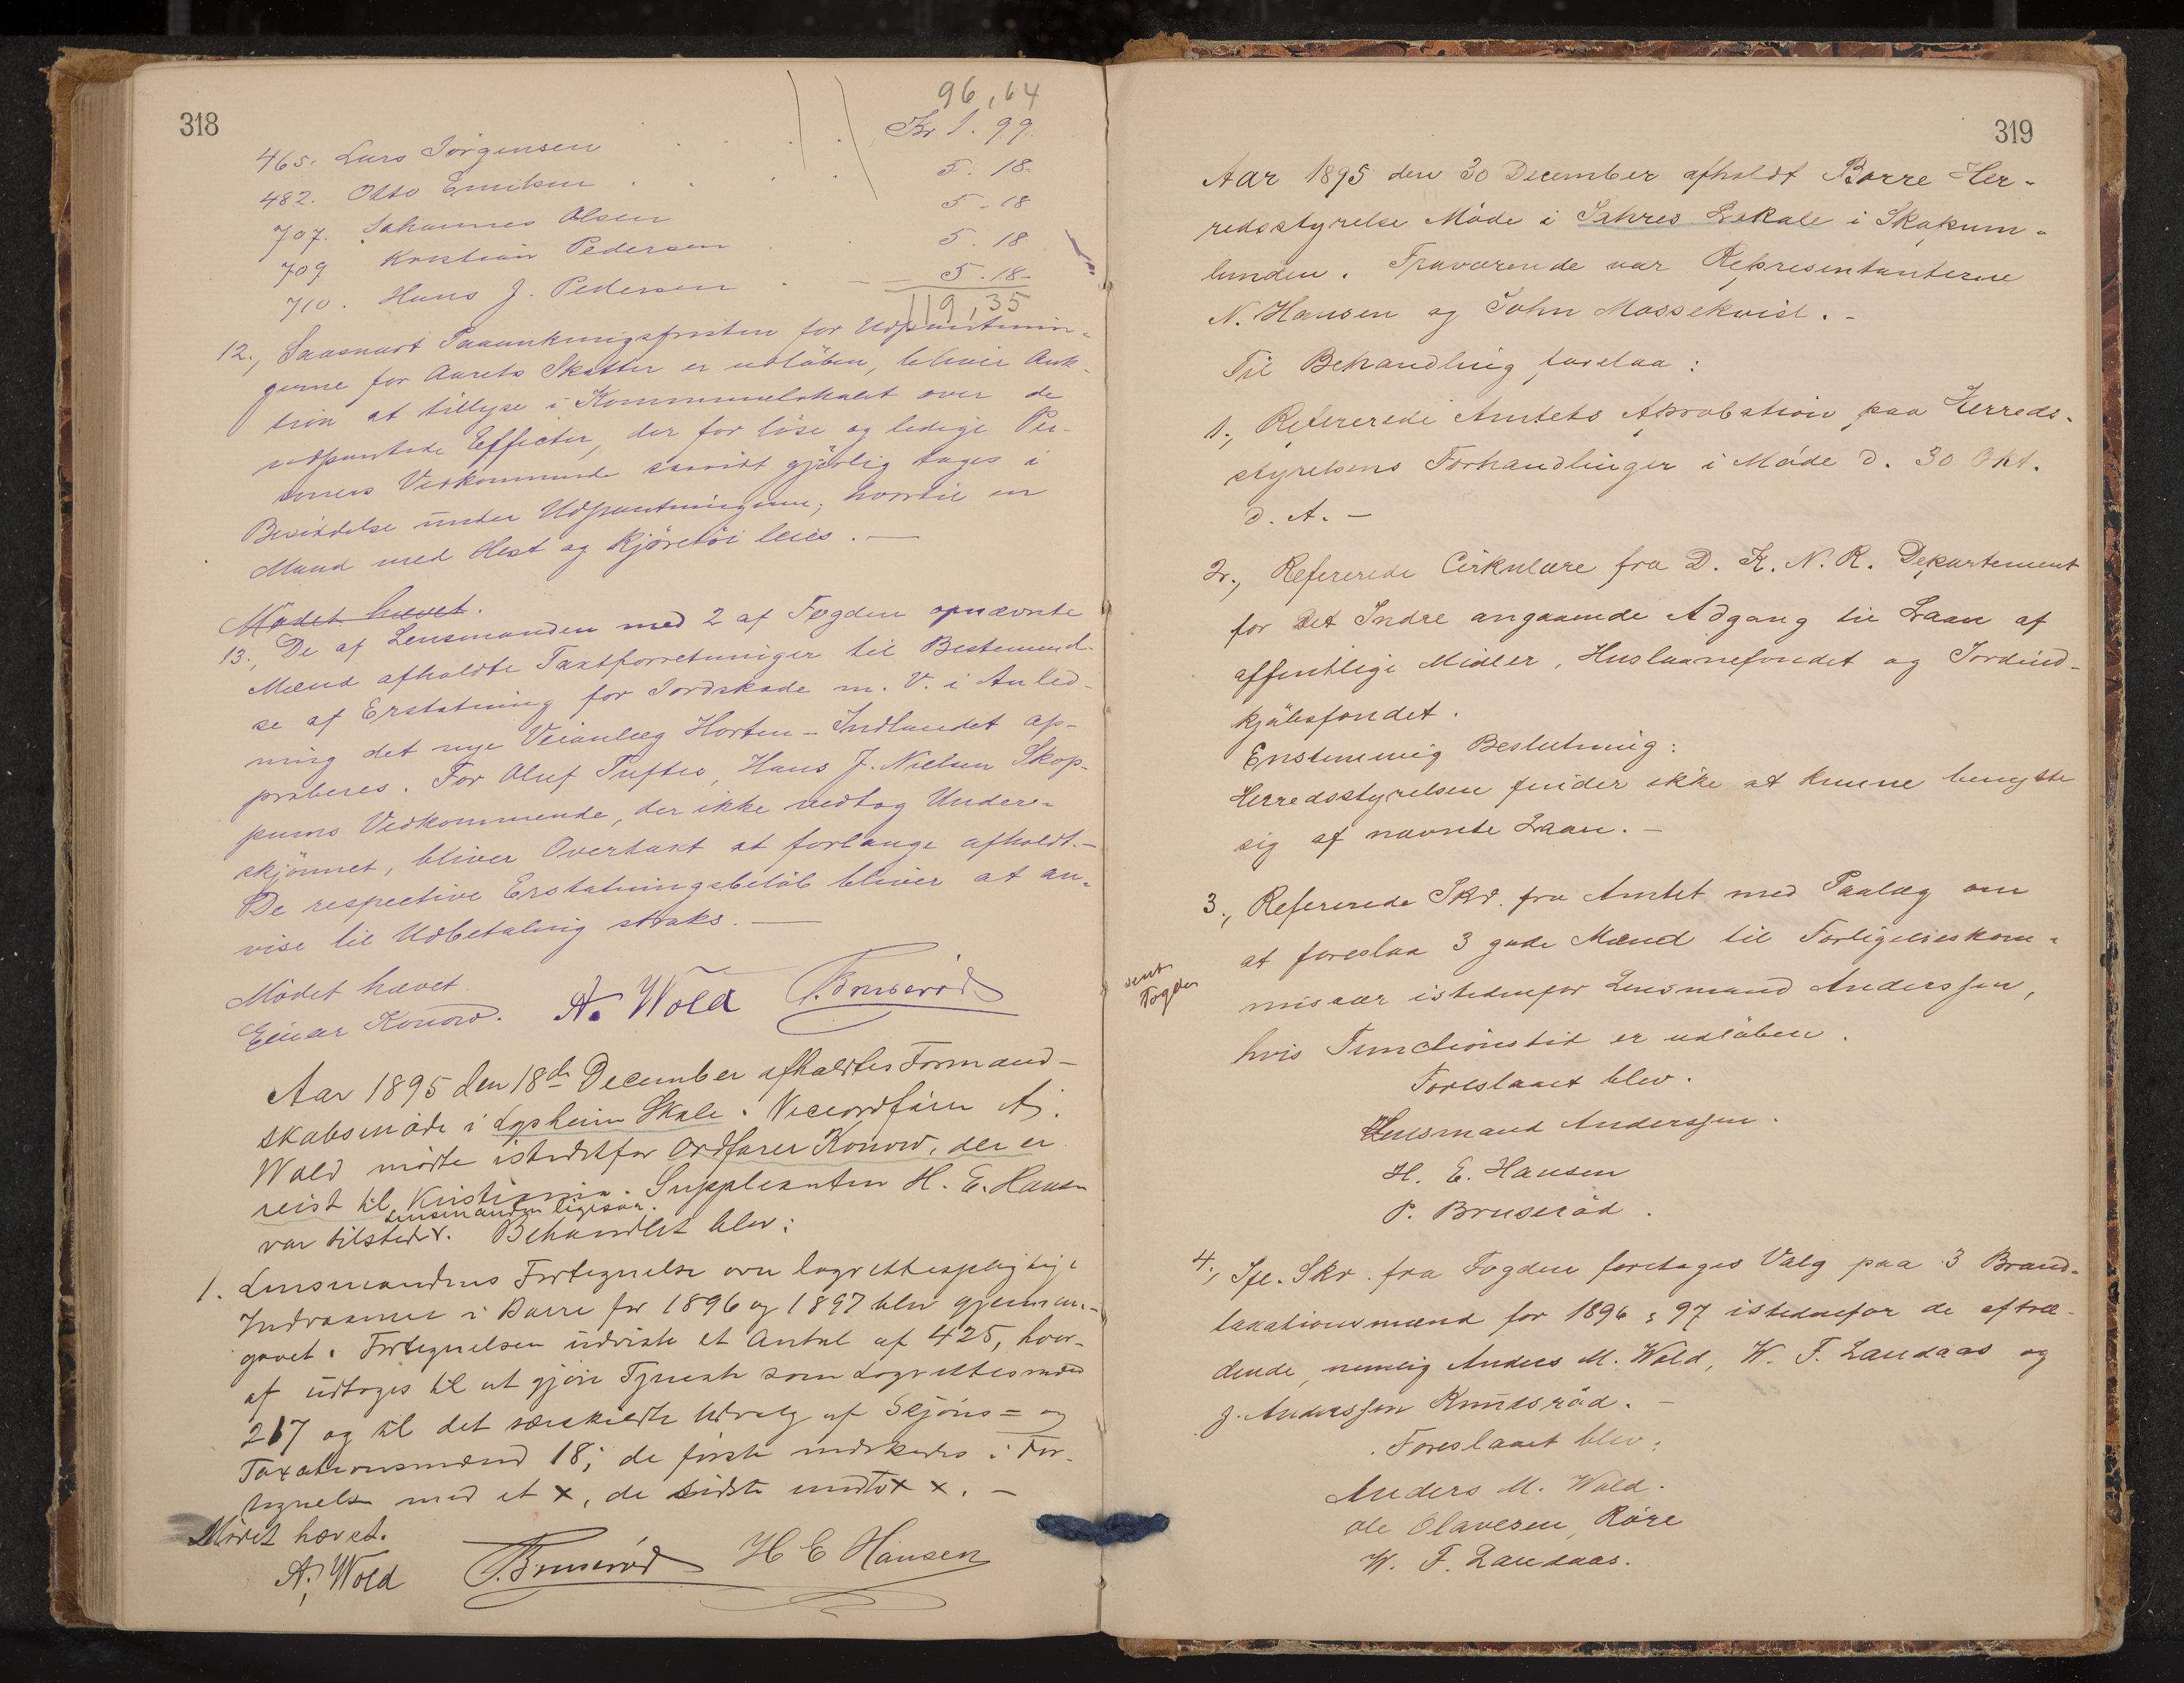 318
96,64
465. Lars Jörgensen Kr 1. 99.
482. Otto Emilsen 5. 18.
707. Johannes Olsen 5-18
709 Kristian Pedersen 5. 18
710. Hans J. Pedersen 5.18-
119,35
12., Saasnart Paaankningsfristen for Udpantnin-
gerne for Aarets Skatter er udlöben, bliver Auk-
tion at tillyse i Kommunelokalet over de
udpantede Effecter, der for löse og ledige Per-
soners Vedkommende saavidt gjörlig tages i
Besiddelse under Udpantningerne, hvortil en
Mand med Hest og Kjöretöi leies. —
Mödet hævet.
13., De af Lensmanden med 2 af Fogden opnævnte
Mænd afholdte Taxtforretninger til Bestemmel-
se af Erstatning for Jordskade m. V. i Anled-
ning det nye Veianlæg Horten - Indlandet ap-
proberes. For Oluf Tuftes, Hans J. Nielsen Skop-
pums Vedkommende, der ikke vedtog Under-
skjönnet, bliver Overtaxt at forlange afholdt.-
De respective Erstatningsbelöb bliver at an-
vise til Udbetaling straks. —
Mödet hævet.
Einar Konow. A. Wold P. Bruseröd
Aar 1895 den 18de December afholdtes Formand-
skabsmöde i Lysheim Skole. Viceordförer A.
Wold mödte istedetfor Ordförer Konow, der er
reist til Kristiania. Suppleanten H. E. Hansen
Lensmanden ligesaa.
var tilstede. Behandlet blev:
1. Lensmandens Fortegnelse over lagrettepligtige
Indvaaner i Borre for 1896 og 1897 blev gjennem-
gaaet. Fortegnelsen udviste et Antal af 425, hvor-
af udtoges til at gjöre Tjeneste som Lagrettesmænd
217 og til det særskildte Udvalg af Skjöns= og
Taxationsmænd 18; de förste mærkedes i For-
tegnelsen med et x, de sidste med to x x. -
Mödet hævet.
A. Wold P. Bruseröd H E Hansen
319
Aar 1895 den 30 December afholdt Borre Her-
redsstyrelse Möde i Jahres Lokale i Skopum-
lunden. Fraværende var Repræsentanterne
N. Hansen og John Mossekvist. -
Til Behandling forelaa:
1., Refererede Amtets Aprobation paa Herreds-
styrelsens Forhandlinger i Möde d. 30 Okt.
d. A. -
2., Refererede Cirkulære fra D. K. N. R. Departement
for det Indre angaaende Adgang til Laan af
offentlige Midler, Huslaanefondet og Jordind-
kjöbsfondet.
Enstemmig Beslutning:
Herredsstyrelsen finder ikke at kunne benytte
sig af nævnte Laan. -
3., Refererede Skr. fra Amtet med Paalæg om
at foreslaa 3 gode Mænd til Forligelseskom-
sendt
Fogden
missær istedenfor Lensmand Anderssen,
hvis Functionstid er udlöben.
Foreslaaet blev.
Lensmand Anderssen.
H. E. Hansen
P. Bruseröd.
4., Ifl. Skr. fra Fogden foretages Valg paa 3 Brand-
taxationsmænd for 1896 & 97 istedenfor de aftræ-
dende, nemlig Anders M. Wold, W. F. Landaas og
J. Anderssen Knudsröd. -
Foreslaaet blev:
Anders M. Wold.
Ole Olavesen Röre
W. F. Landaas.